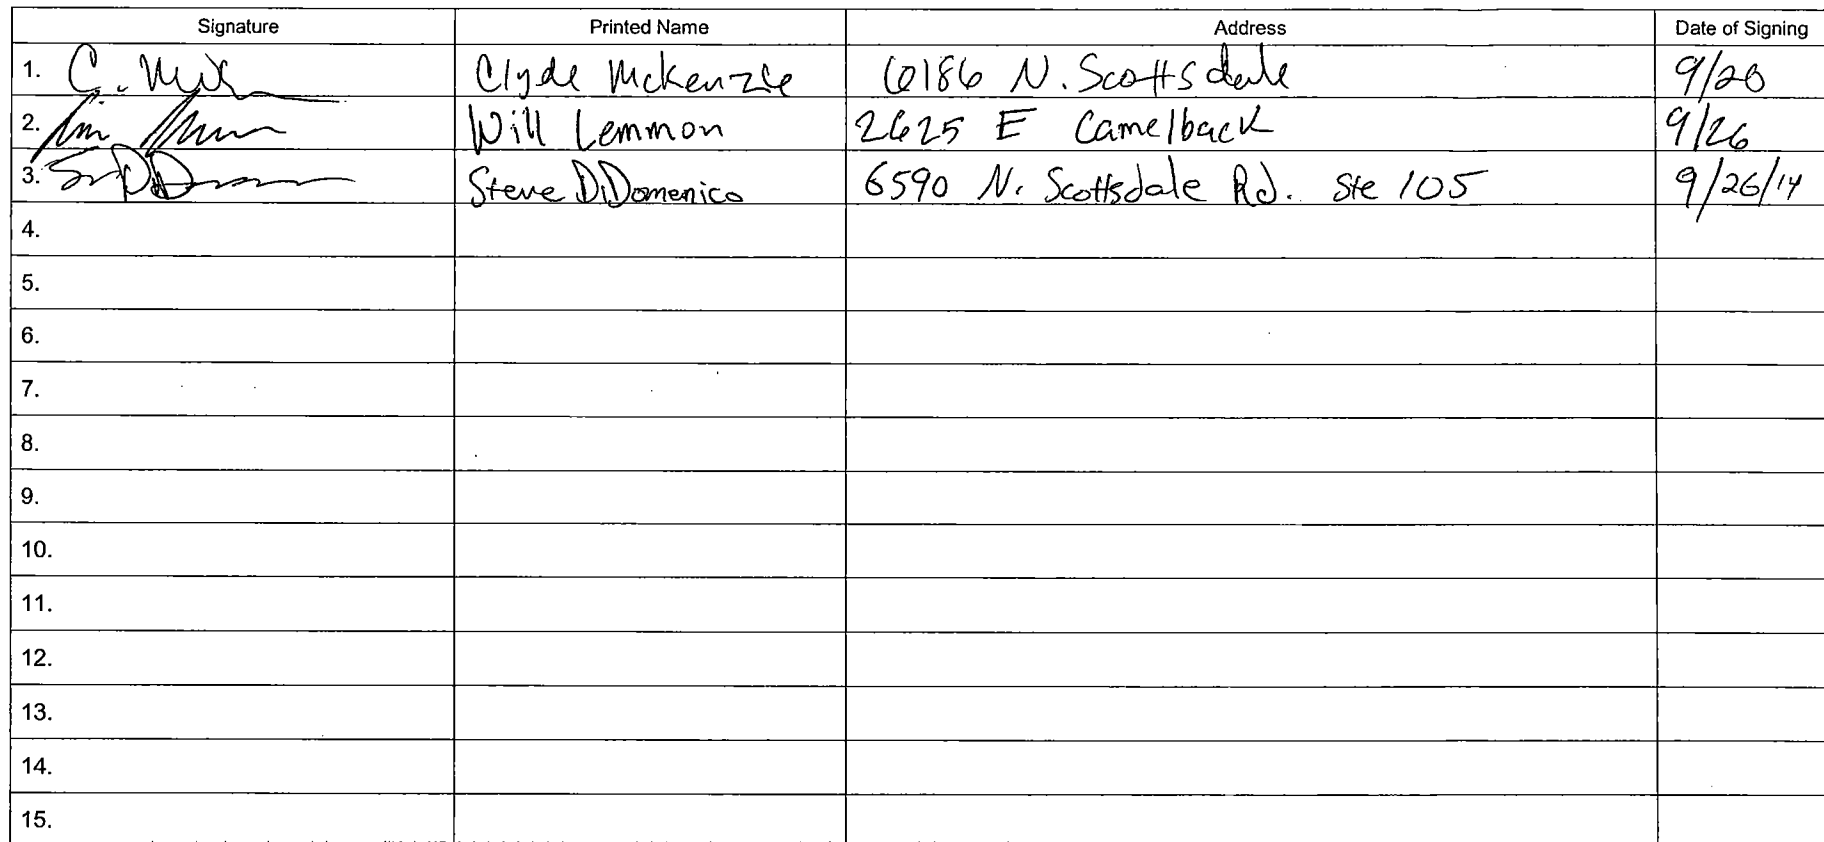 Signature Printed Name Address Date of Signing
1. Clyde McKenzie 6186 N. Scottsdale 9/26
2. Will Lemmon 2625 E Camelback 9/26
3. Steve DiDomenico 6590 N. Scottsdale Rd. Ste 105 9/26/14
4.
5.
6.
7.
8.
9.
10.
11.
12.
13.
14.
15.